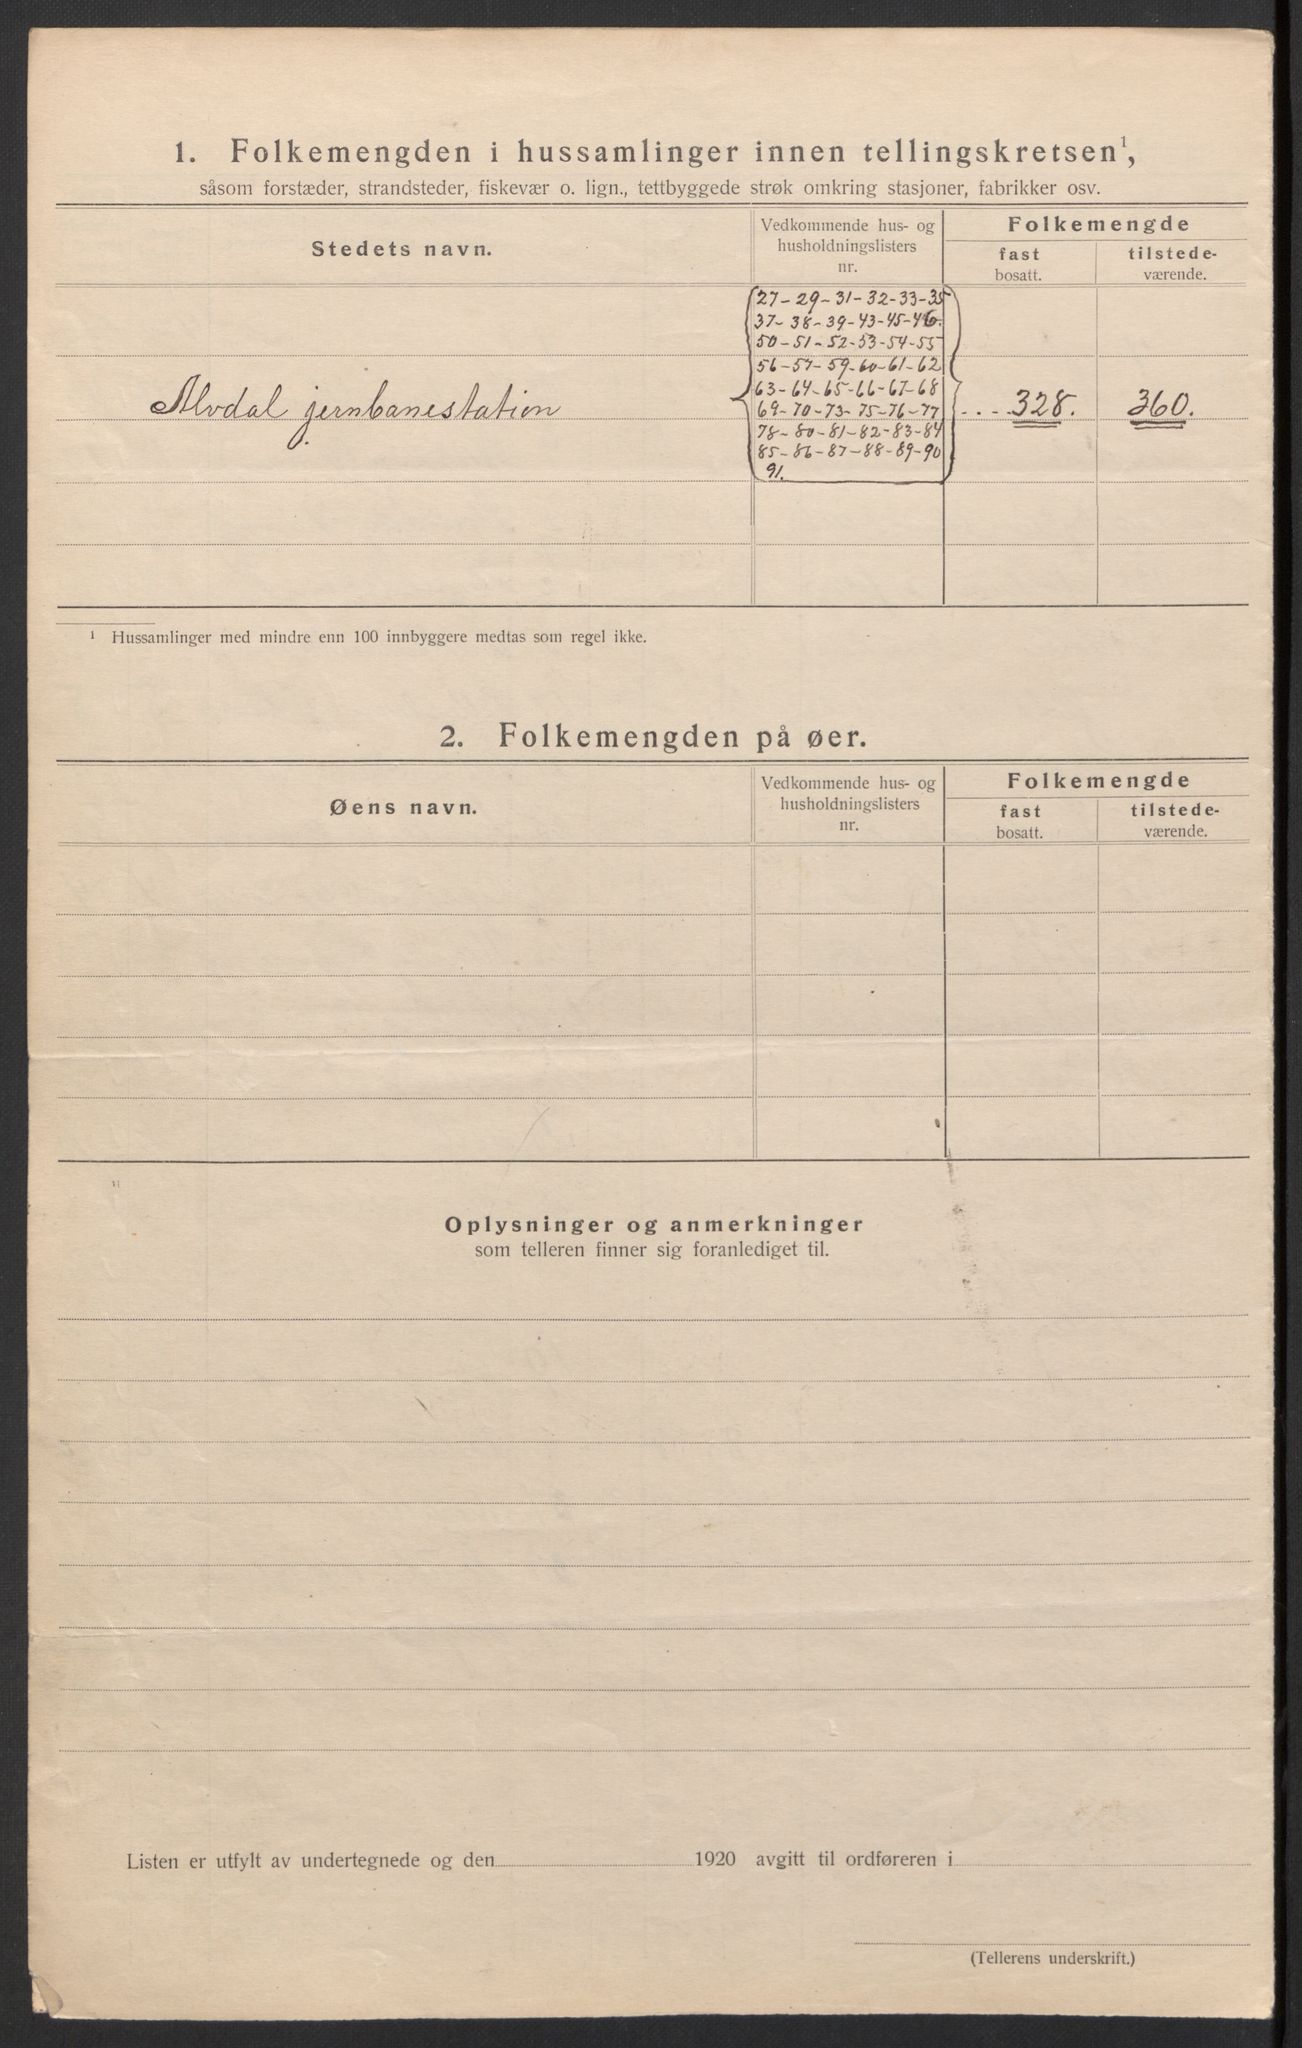 1. Folkemengden i hussamlinger innen tellingskretsen¹,
såsom forstæder, strandsteder, fiskevær o. lign., tettbyggede strøk omkring stasjoner, fabrikker osv.
Stedets navn.
Vedkommende hus- og
husholdningslisters
nr.
Folkemengde
fast
bosatt.
tilstede-
værende.
27-29-31-32-33-35
37-38-39-43-45-46.
50-51-52-53-54-55
56-57-59-60-61-62
63-64-65-66-67-68
Alvdal jernbanestation
69-70-73-75-76-77
....328.
360.
78-80-81-82-83-84
85-86-87-88-89-90
91.
¹ Hussamlinger med mindre enn 100 innbyggere medtas som regel ikke.
2. Folkemengden på øer.
Øens navn.
Vedkommende hus- og
husholdningslisters
nr.
Folkemengde
fast
bosatt.
tilstede-
værende.
Oplysninger og anmerkninger
som telleren finner sig foranlediget til.
Listen er utfylt av undertegnede og den 1920 avgitt til ordføreren i
(Tellerens underskrift.)